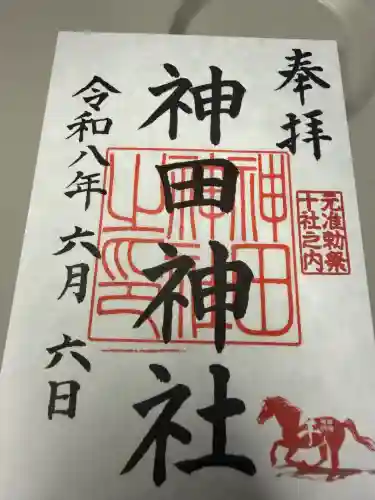 奉拝
元准勅祭
十社之内
神田神社
神田
神社
之印
令和八年 六月 六日